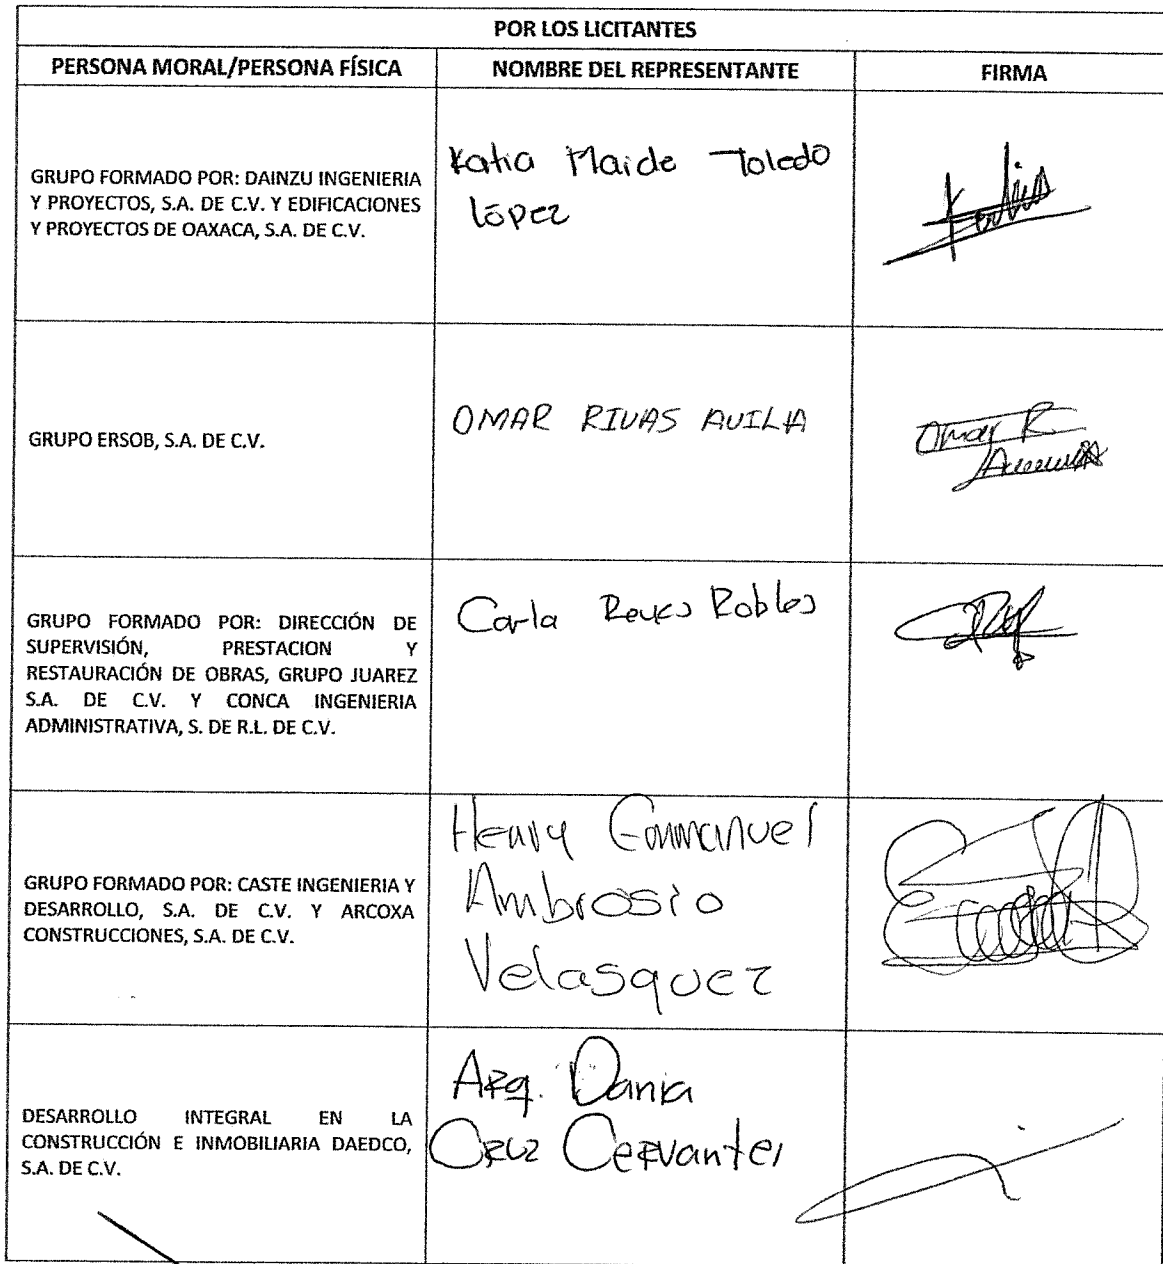 POR LOS LICITANTES
PERSONA MORAL/PERSONA FÍSICA NOMBRE DEL REPRESENTANTE FIRMA
GRUPO FORMADO POR: DAINZU INGENIERIA
Y PROYECTOS, S.A. DE C.V. Y EDIFICACIONES
Y PROYECTOS DE OAXACA, S.A. DE C.V.
Katia Maide Toledo
López
GRUPO ERSOB, S.A. DE C.V.
OMAR RIVAS AVILA
Omar R.
GRUPO FORMADO POR: DIRECCIÓN DE
SUPERVISIÓN, PRESTACION Y
RESTAURACIÓN DE OBRAS, GRUPO JUAREZ
S.A. DE C.V. Y CONCA INGENIERIA
ADMINISTRATIVA, S. DE R.L. DE C.V.
Carla Reyes Robles
GRUPO FORMADO POR: CASTE INGENIERIA Y
DESARROLLO, S.A. DE C.V. Y ARCOXA
CONSTRUCCIONES, S.A. DE C.V.
Henry Emmanuel
Ambrosio
Velasquez
DESARROLLO INTEGRAL EN LA
CONSTRUCCIÓN E INMOBILIARIA DAEDCO,
S.A. DE C.V.
Arq. Dania
Cruz Cervantes